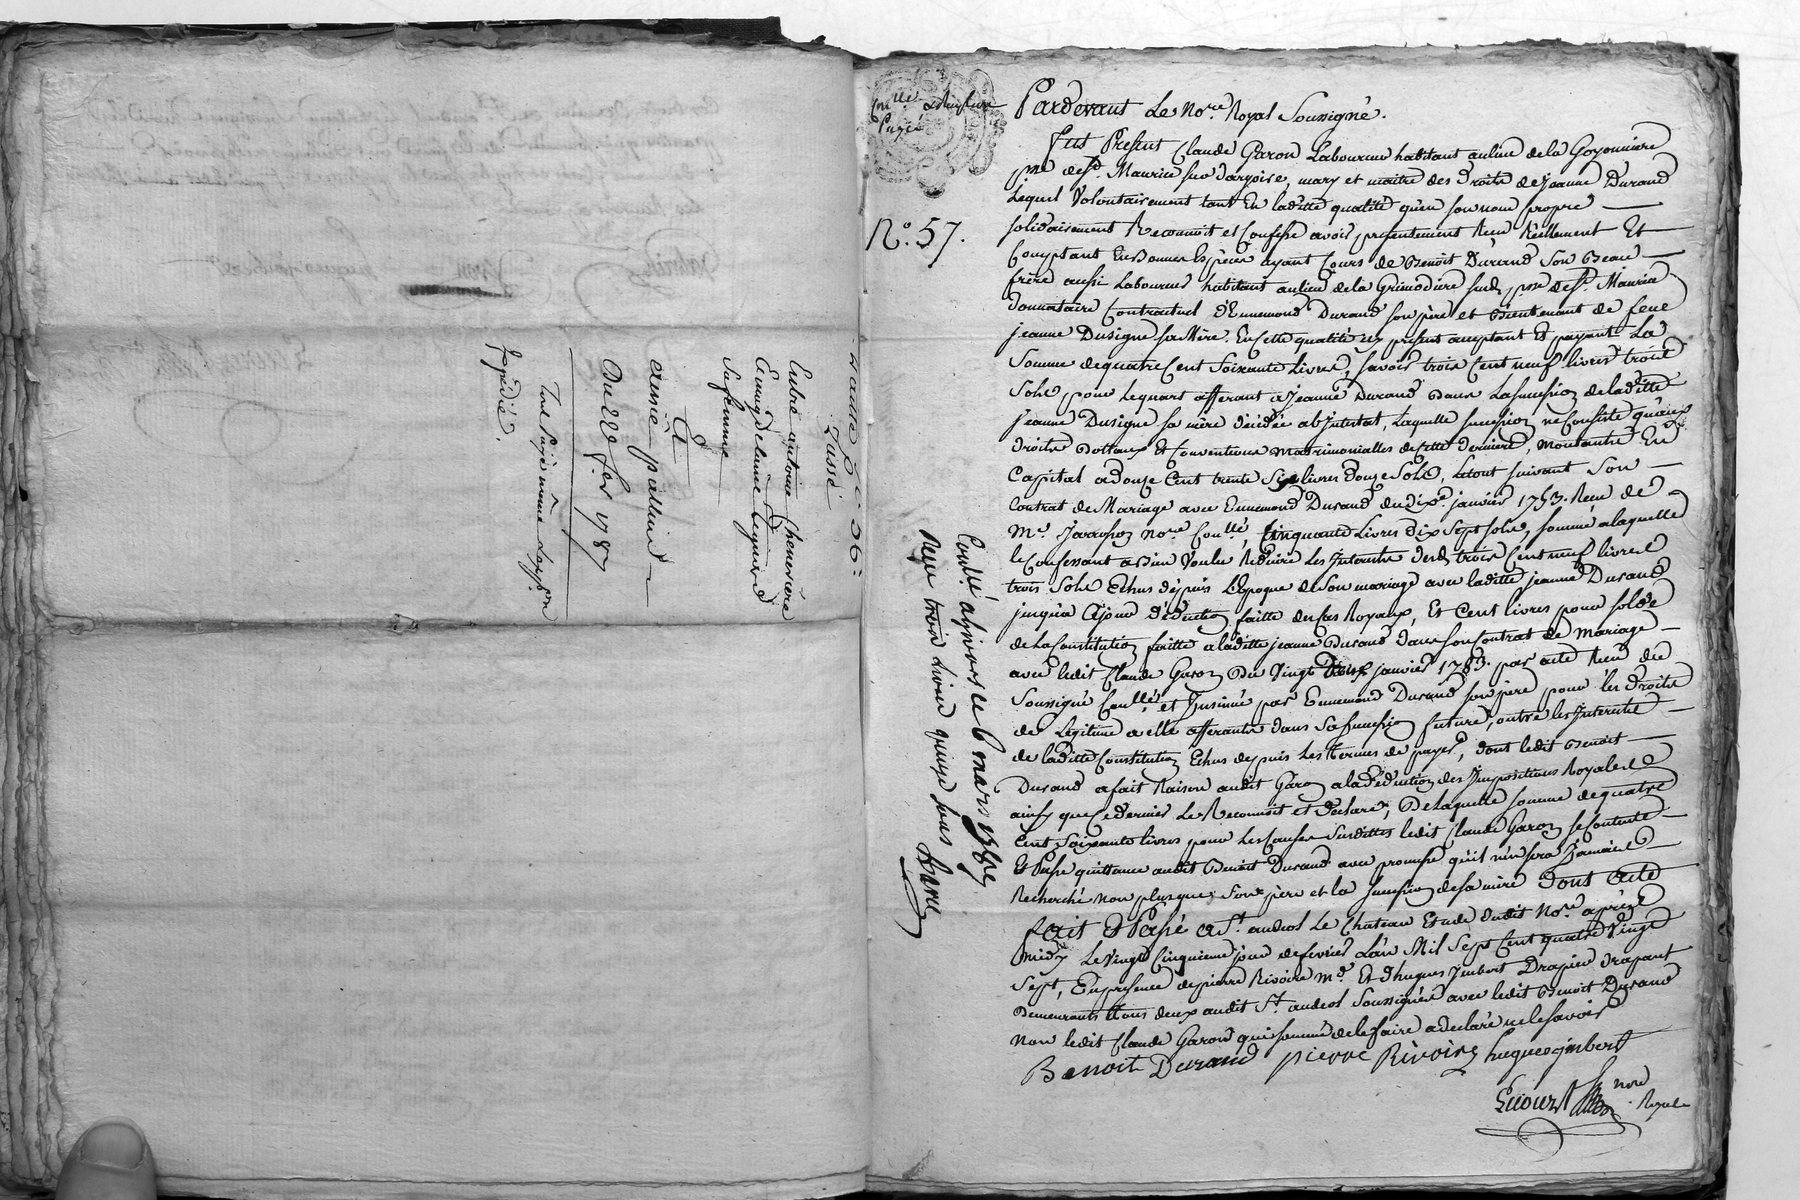 Entre antoine chenevriere
Sa femme
Et
du 22 fer 1787
Tout payé même
Expédié.
mlle
Payé
No. 57.
Conllé a givors ce 6 mars 1787
Reçu trois livres quinze sous
Pardevant Le Nore. Royal Soussigné.
Fut Present Claude Garon Laboureur habitant au lieu de la Goyonniere
psse de St. Maurice sur dargoire, mary et maitre des droits de Jeanne Durand
Lequel Volontairement tant En laditte qualité qu'en son nom propre
solidairement Reconnoit et Confesse avoir presentement Reçu Réellement Et
Comptant En Bonnes Espèces ayant Cours de Benoit Durand Son Beau
frère aussi Laboureur habitant au lieu de la Grimodiere susd. psse de St. Maurice
donnataire Contractuel d'Ennemond Durand son père et Bientenant de feue
jeanne Dusigne sa Mère. En Cette qualité icy present acceptant Et payant La
Somme de quatre Cent Soixante Livres, savoir trois Cent neuf livres trois
Sols pour Le quart afferant a Jeanne Durand Dans La succession de laditte
jeanne Dusigne sa mère décédée ab Intestat, Laquelle succession ne Consiste qu'aux
droits Dottaux et Conventions Matrimonialles de Cette derniere, montants En
Capital a douze Cent trente Six livres douze Sols, le tout suivant Son
Contrat de Mariage avec Ennemond Durand du dixe. janvier 1753. Reçu de
Me. nore. Conllé, Cinquante Livres dix Sept sols, somme a laquelle
le Confessant a Bien Voulu Reduire Les Interets desd. trois Cent neuf livres
trois Sols Echus depuis L'Epoque de Son mariage avec laditte jeanne Durand
jusqu'a Ce jour deduction faitte des Cas Royaux, Et Cent livres pour solde
de La Constitution faitte a laditte jeanne Durand dans son Contrat de Mariage
avec ledit Claude Garon Du Vingt janvier 1783. par acte Reçu du
Soussigné Conllé, et Insinué par Ennemond Durand son père pour les droits
de Legitime a elle afferants dans Sa succession future, outre les Interets
de laditte Constitution Echus depuis Les termes de payer, dont ledit Benoit
Durand a fait Raison audit Garon a la Déduction des Impositions Royales
ainsy que Ce dernier Le Reconnoit et déclare, De Laquelle somme de quatre
Cent Soixante livres pour Les Causes Susdittes ledit Claude Garon se Contente
Et Passe quittance audit Benoit Durand avec promesse qu'il n'en sera Jamais
Recherché non plus que son père et la succession de sa mère Dont acte
Fait Et Passé a St. andeol Le Chateau Etude dudit Nore. après
Midy Le Vingt Cinquieme jour de fevrier L'an Mil Sept Cent quatre Vingt
Sept, En presence de pierre Rivoire Md. Et d'hugues Imbert Drapier drapant
Demeurants tous deux audit St. andeol Soussignés avec ledit Benoit Durand
Non ledit Claude Garon qui sommé de le faire a declaré ne le savoir
Benoit Durand pierre Rivoire hugues jmbert
nore
Royal